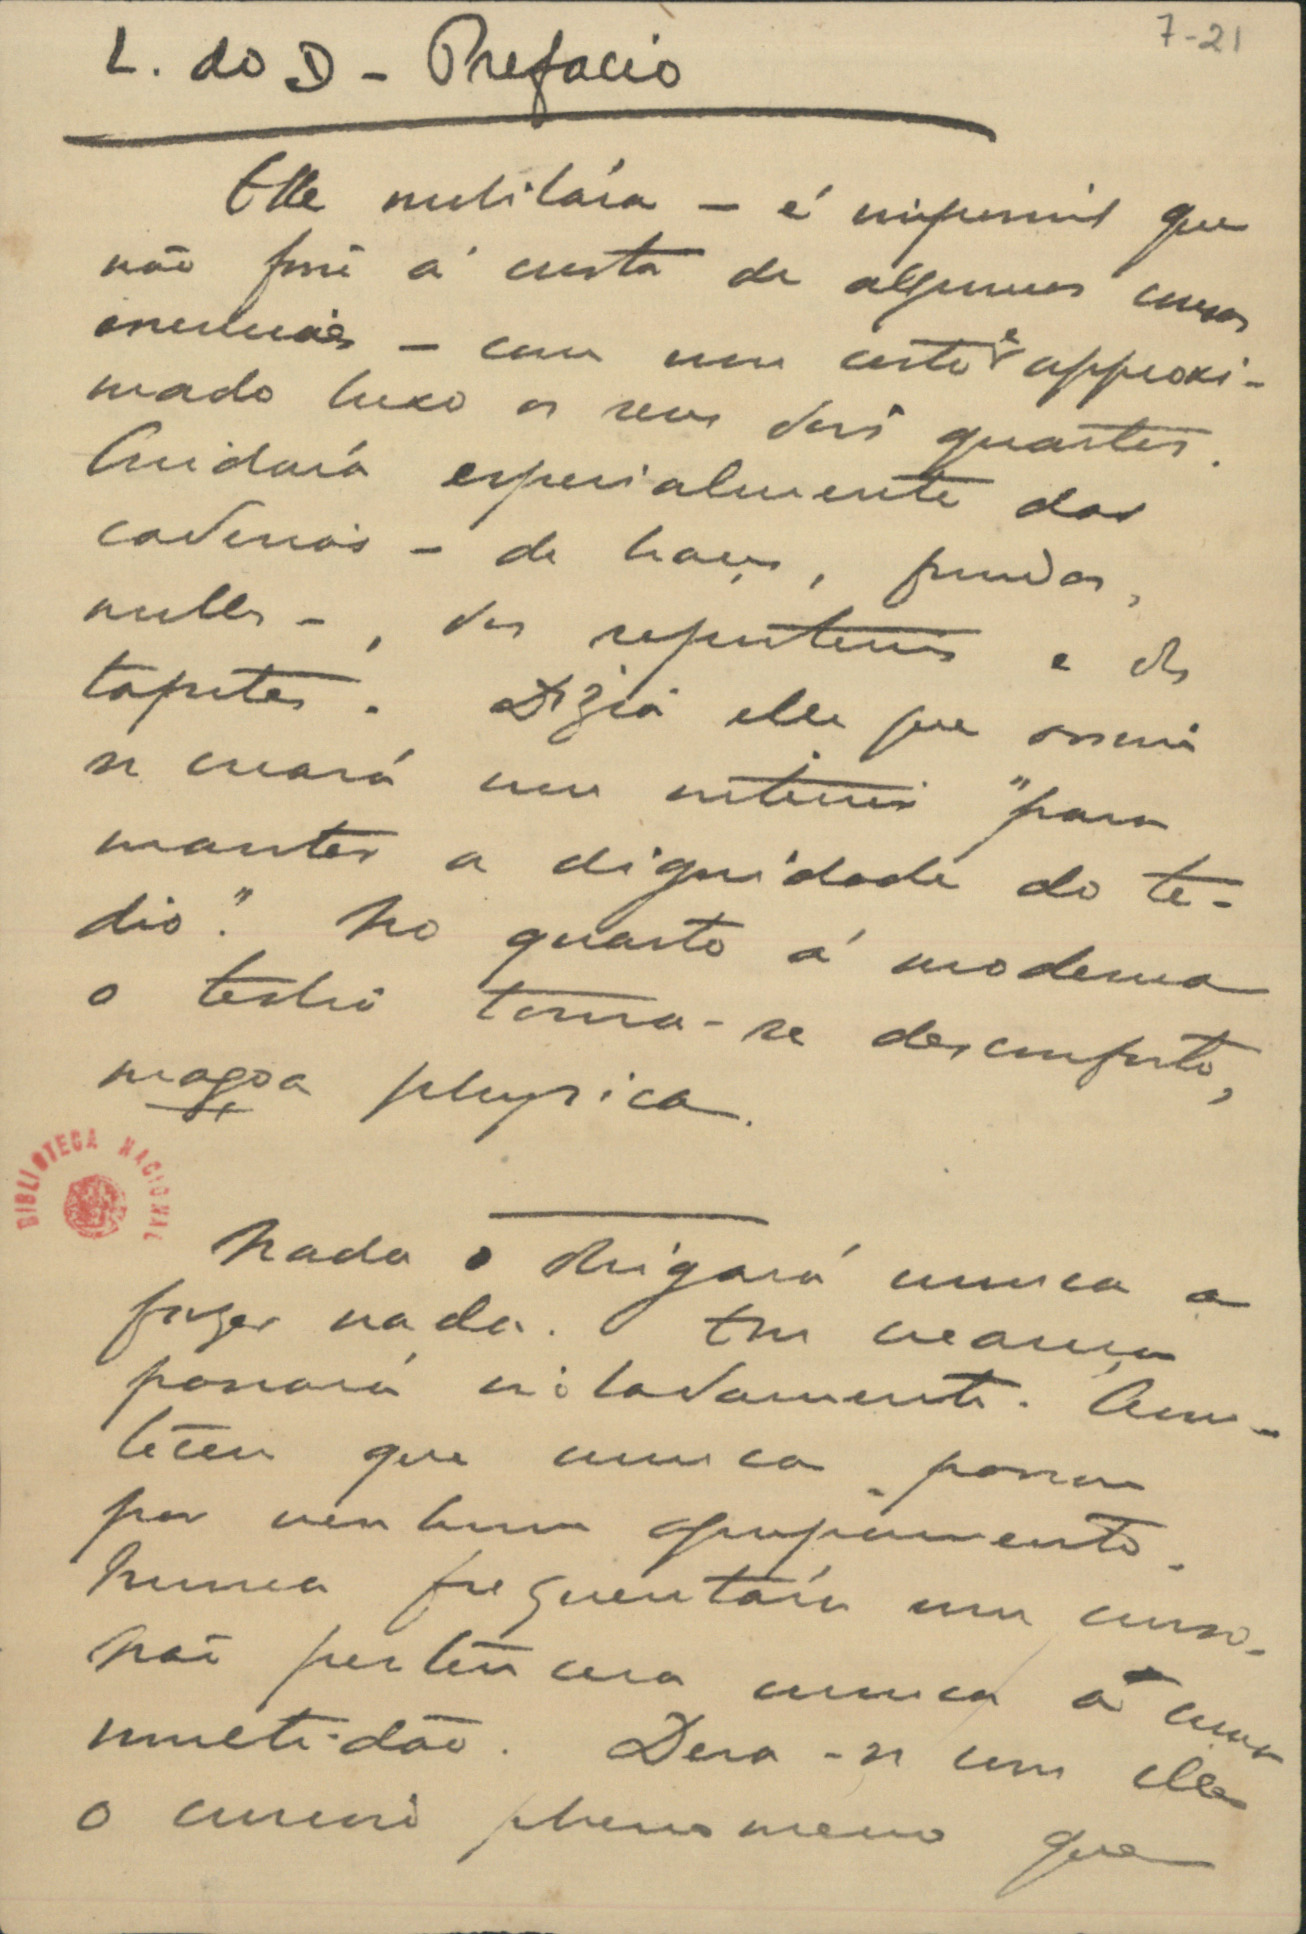 7-21
L. do D - Prefacio
Elle mobilára – é impossivel que
não fosse á custa de algumas cousas
essenciaes – com um certo e approxi-
mado luxo os seus dois quartos.
Cuidara especialmente das
cadeiras – de braços, fundas,
molles –, dos reposteiros e dos
tapetes. Dizia elle que assim
se creara um interior "para
manter a dignidade do te-
dio". No quarto á moderna
o tedio torna-se desconforto,
magoa physica.
Nada o obrigara nunca a
fazer nada. Em creança
passara isoladamente. Acon-
teceu que nunca passou
por nenhum agrupamento.
Nunca frequentára um curso.
Não pertencera nunca a uma
multidão. Dera-se com elle
o curioso phenomeno que
BIBLIOTECA NACIONAL